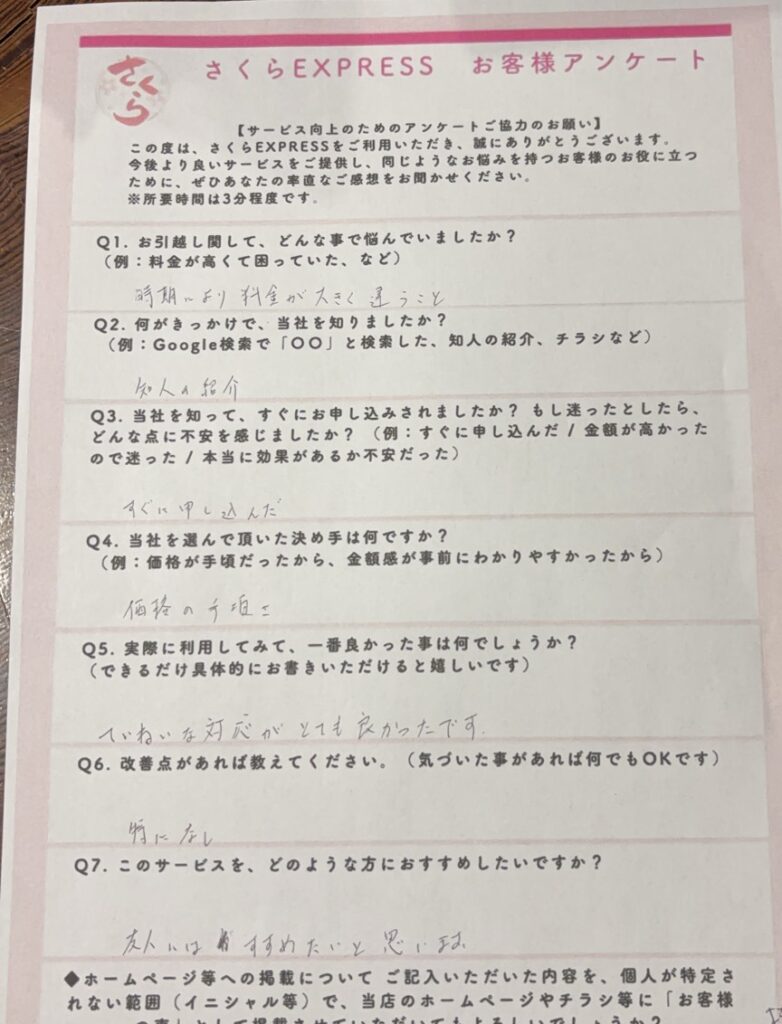 さくら
さくらEXPRESS お客様アンケート
【サービス向上のためのアンケートご協力のお願い】
この度は、さくらEXPRESSをご利用いただき、誠にありがとうございます。
今後より良いサービスをご提供し、同じようなお悩みを持つお客様のお役に立つ
ために、ぜひあなたの率直なご感想をお聞かせください。
※所要時間は3分程度です。
Q1. お引越し関して、どんな事で悩んでいましたか？
（例：料金が高くて困っていた、など）
時期により料金が大きく違うこと
Q2. 何がきっかけで、当社を知りましたか？
（例：Google検索で「〇〇」と検索した、知人の紹介、チラシなど）
知人の紹介
Q3. 当社を知って、すぐにお申し込みされましたか？ もし迷ったとしたら、
どんな点に不安を感じましたか？（例：すぐに申し込んだ / 金額が高かった
ので迷った / 本当に効果があるか不安だった）
すぐに申し込んだ
Q4. 当社を選んで頂いた決め手は何ですか？
（例：価格が手頃だったから、金額感が事前にわかりやすかったから）
価格の手頃さ
Q5. 実際に利用してみて、一番良かった事は何でしょうか？
（できるだけ具体的にお書きいただけると嬉しいです）
ていねいな対応がとても良かったです。
Q6. 改善点があれば教えてください。（気づいた事があれば何でもOKです）
特になし
Q7. このサービスを、どのような方におすすめしたいですか？
友人にはすすめたいと思います
◆ホームページ等への掲載について ご記入いただいた内容を、個人が特定さ
れない範囲（イニシャル等）で、当店のホームページやチラシ等に「お客様
の声」として掲載させていただいてもよろしいでしょうか？